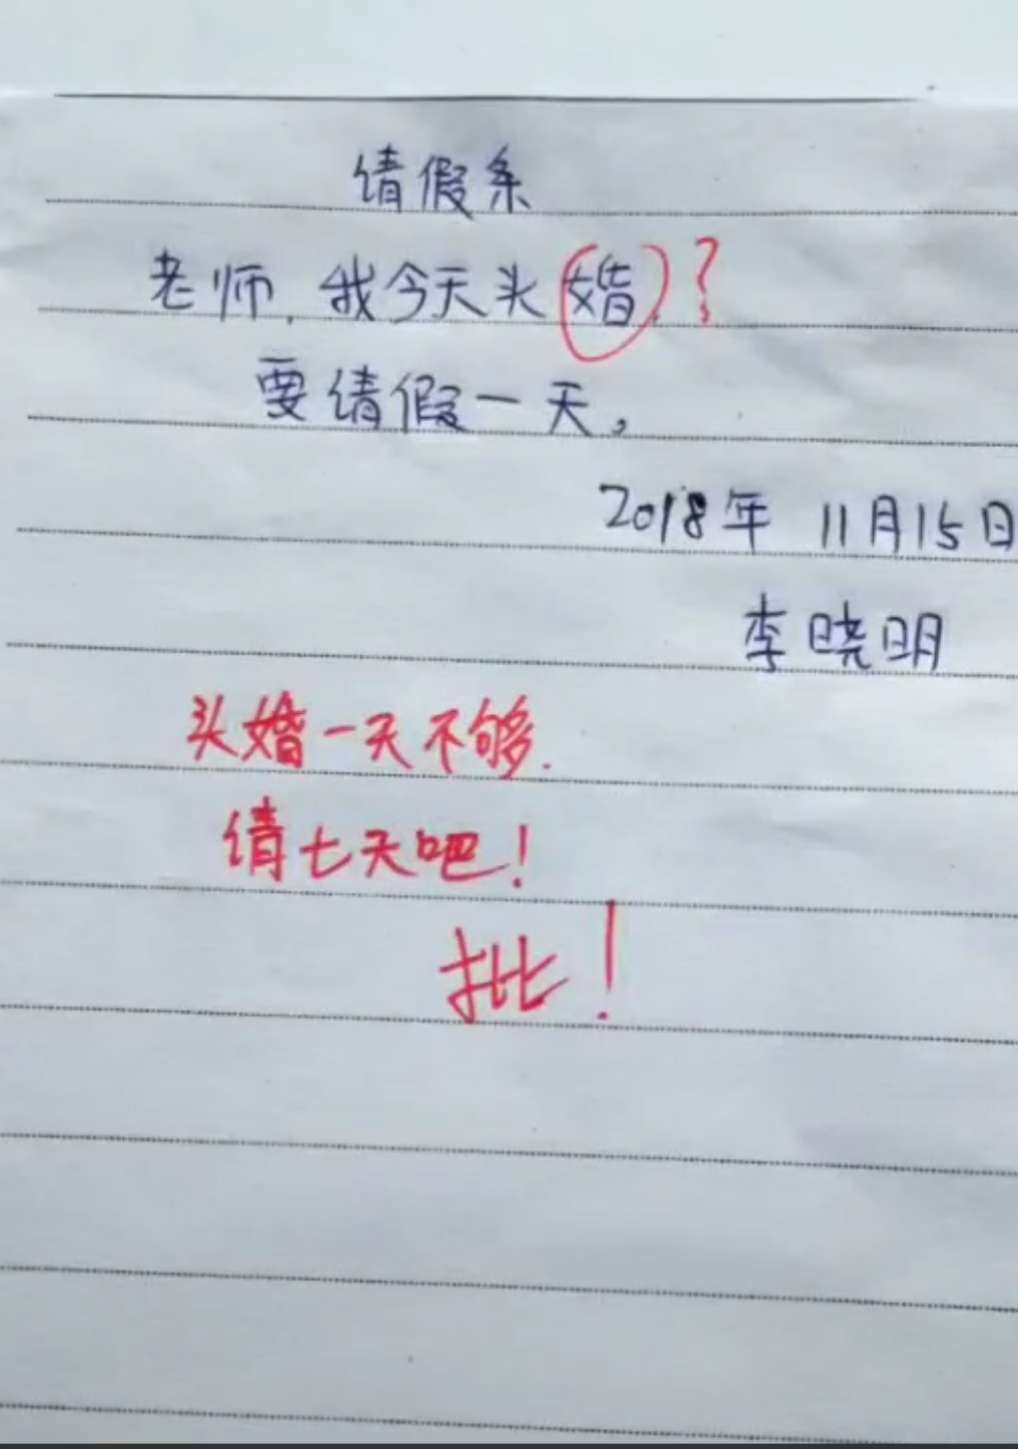 请假条
老师,我今天头婚.?
要请假一天。
2018年 11月15日
李晓明
头婚一天不够.
请七天吧!
批!